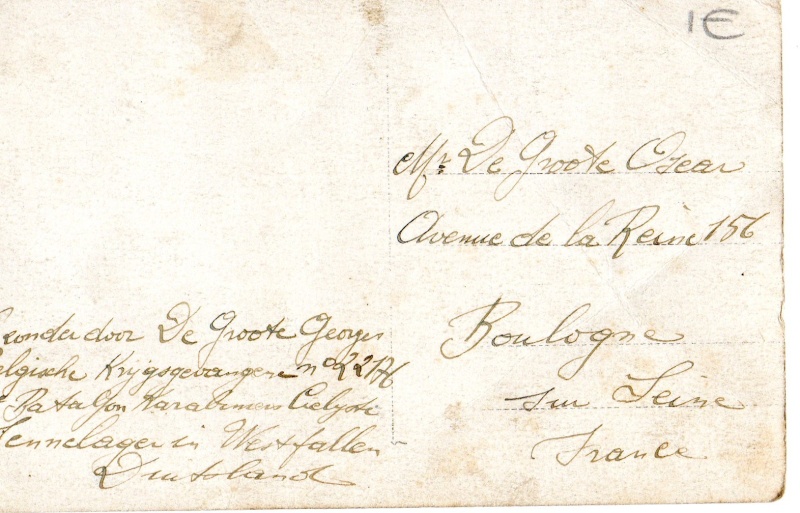 1€
Mr De Groote Oscar
Avenue de la Reine 156
Boulogne
sur Seine
France
zonder door De Groote Georges
elgische Krijgsgevangene n°
Batallon Karabiniers Cieljsti
ennelager in Westfallen
Duitsland